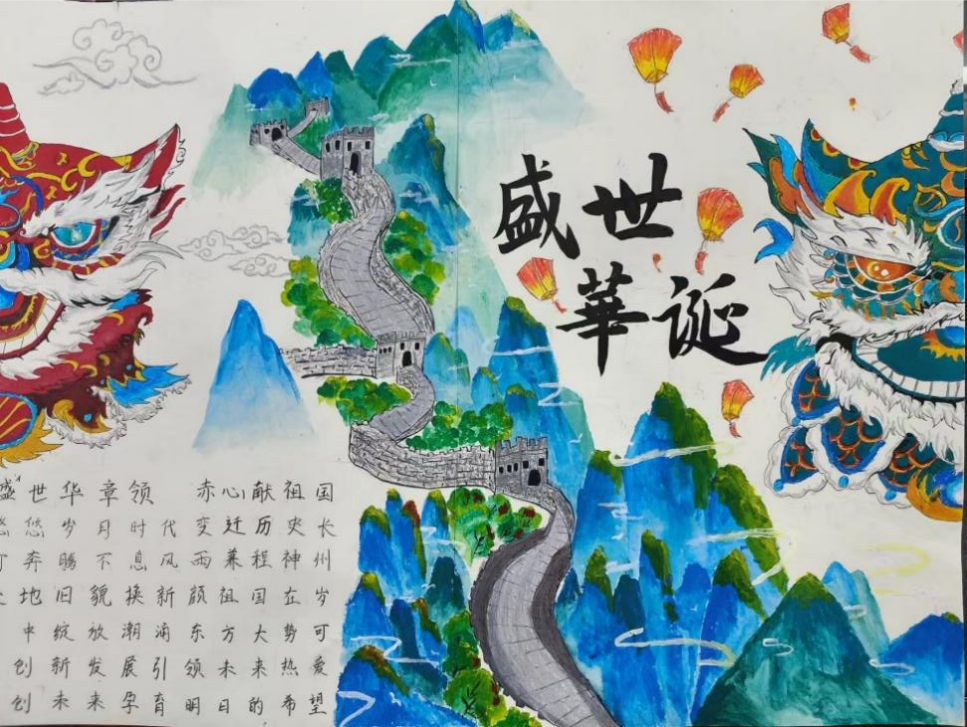 盛世
華诞
盛世华章领 赤心献祖国
悠悠岁月时代变迁历史长
奔腾不息风雨兼程神州
地旧貌换新颜祖国在岁
中绽放潮涌东方大势可
创新发展引领未来热爱
创未来孕育明日的希望